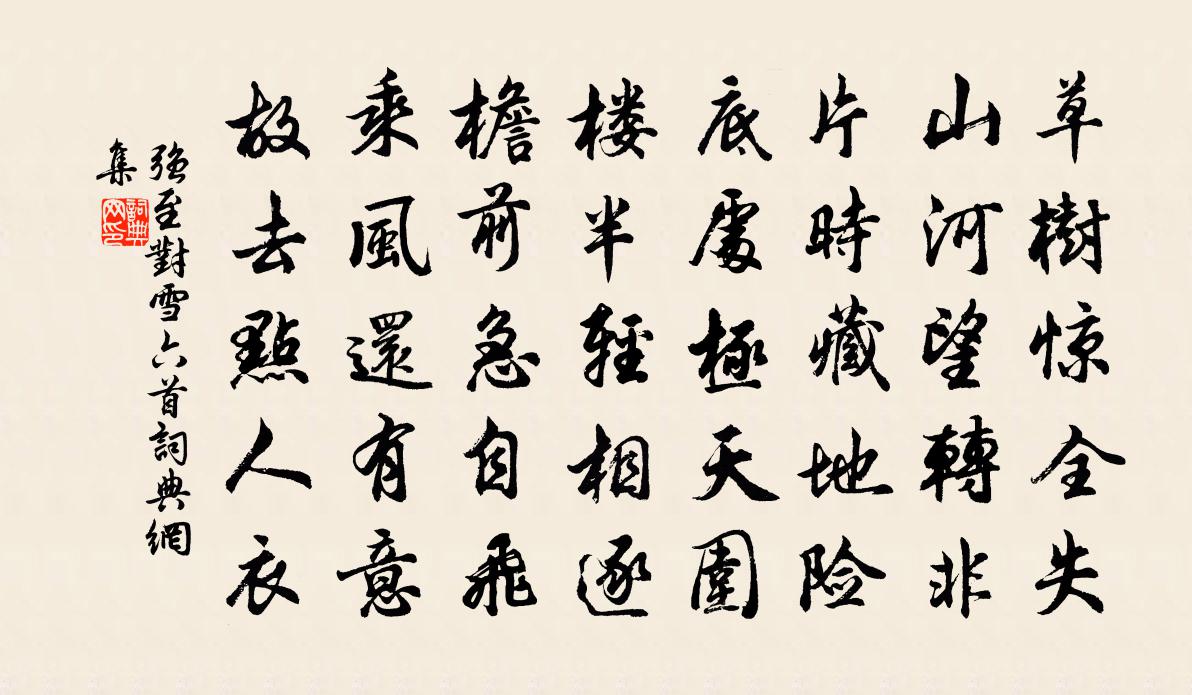 草樹惊全失
山河望轉非
片時藏地险
底處極天圍
楼半輕相逐
檐前急自飛
乘風還有意
故去點人衣
強至對雪六首詞典網
集
詞典
网印